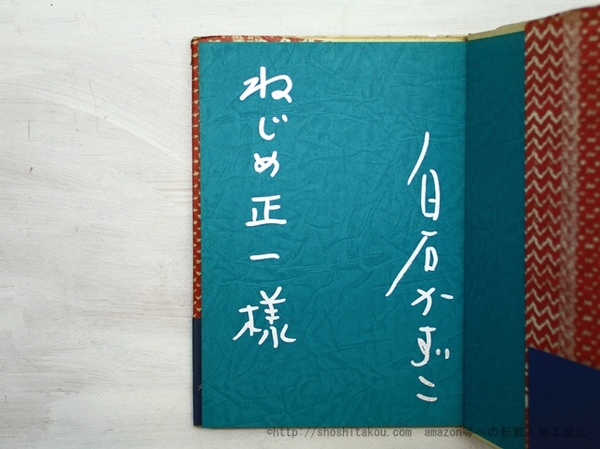 白石かずこ
ねじめ正一様
©http://shoshitakou.com amazon等への転載・加工禁止